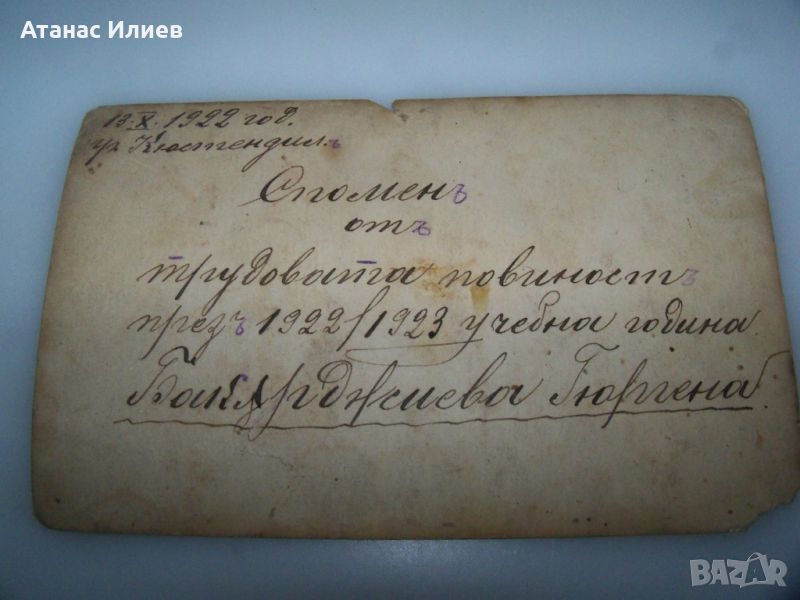 Атанас Илиев
13.X.1922 год.
гр. Кюстендилъ
Споменъ
отъ
трудовата повиность
презъ 1922/1923 учебна година
Бакърджиева Гюргена
BAZAR